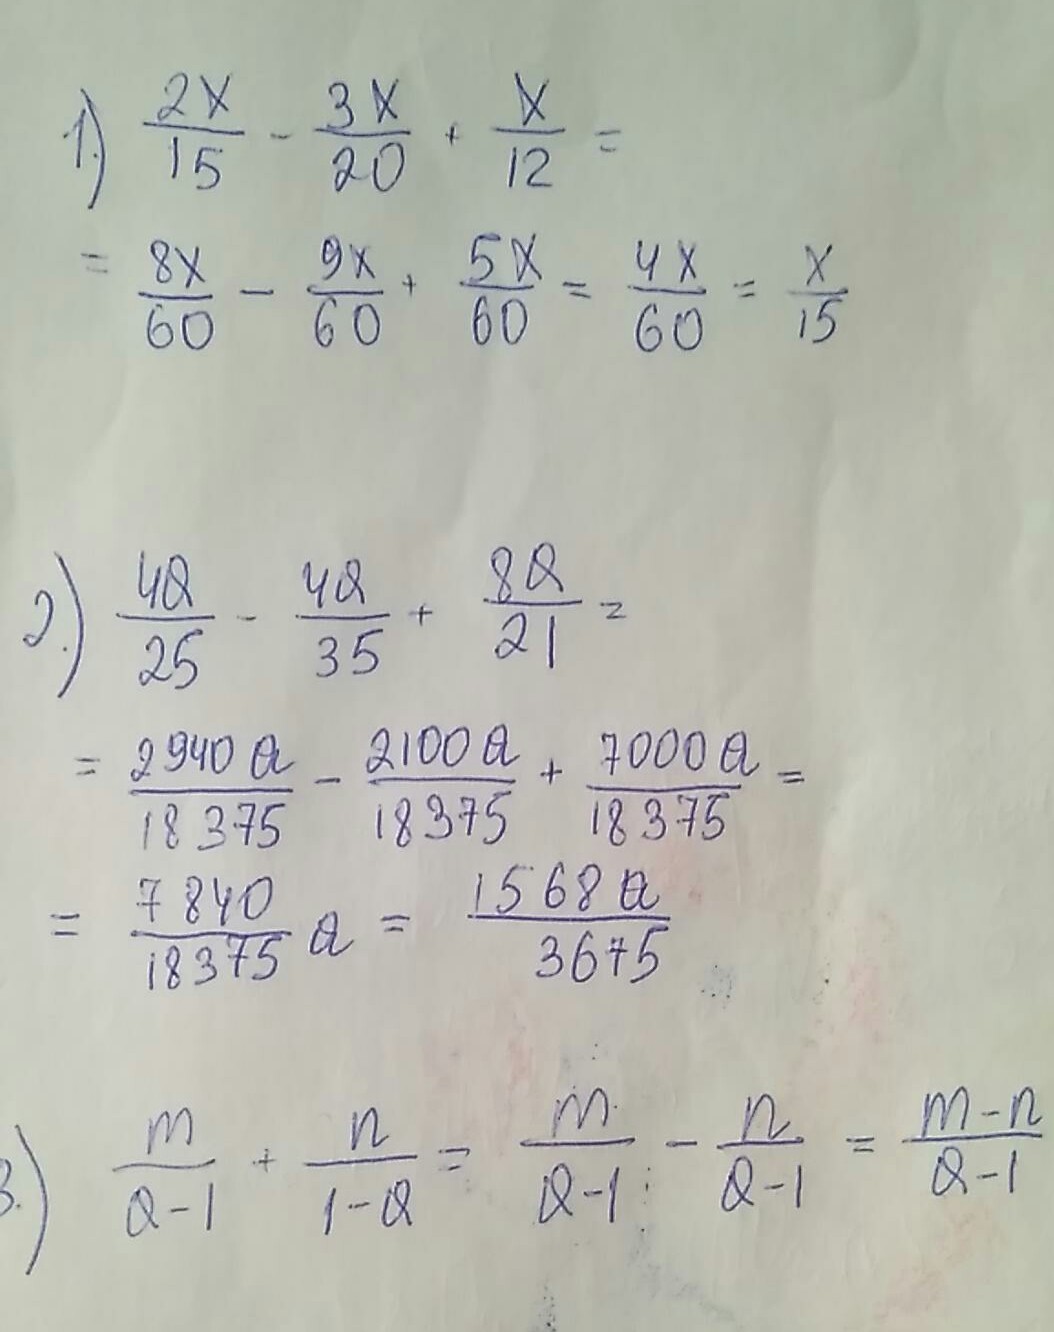 1.) 2x/15 - 3x/20 + x/12 =
= 8x/60 - 9x/60 + 5x/60 = 4x/60 = x/15
2.) 4a/25 - 4a/35 + 8a/21 =
= 2940a/18375 - 2100a/18375 + 7000a/18375 =
= 7840/18375 a = 1568a/3675
3.) m/a-1 + n/1-a = m/a-1 - n/a-1 = m-n/a-1